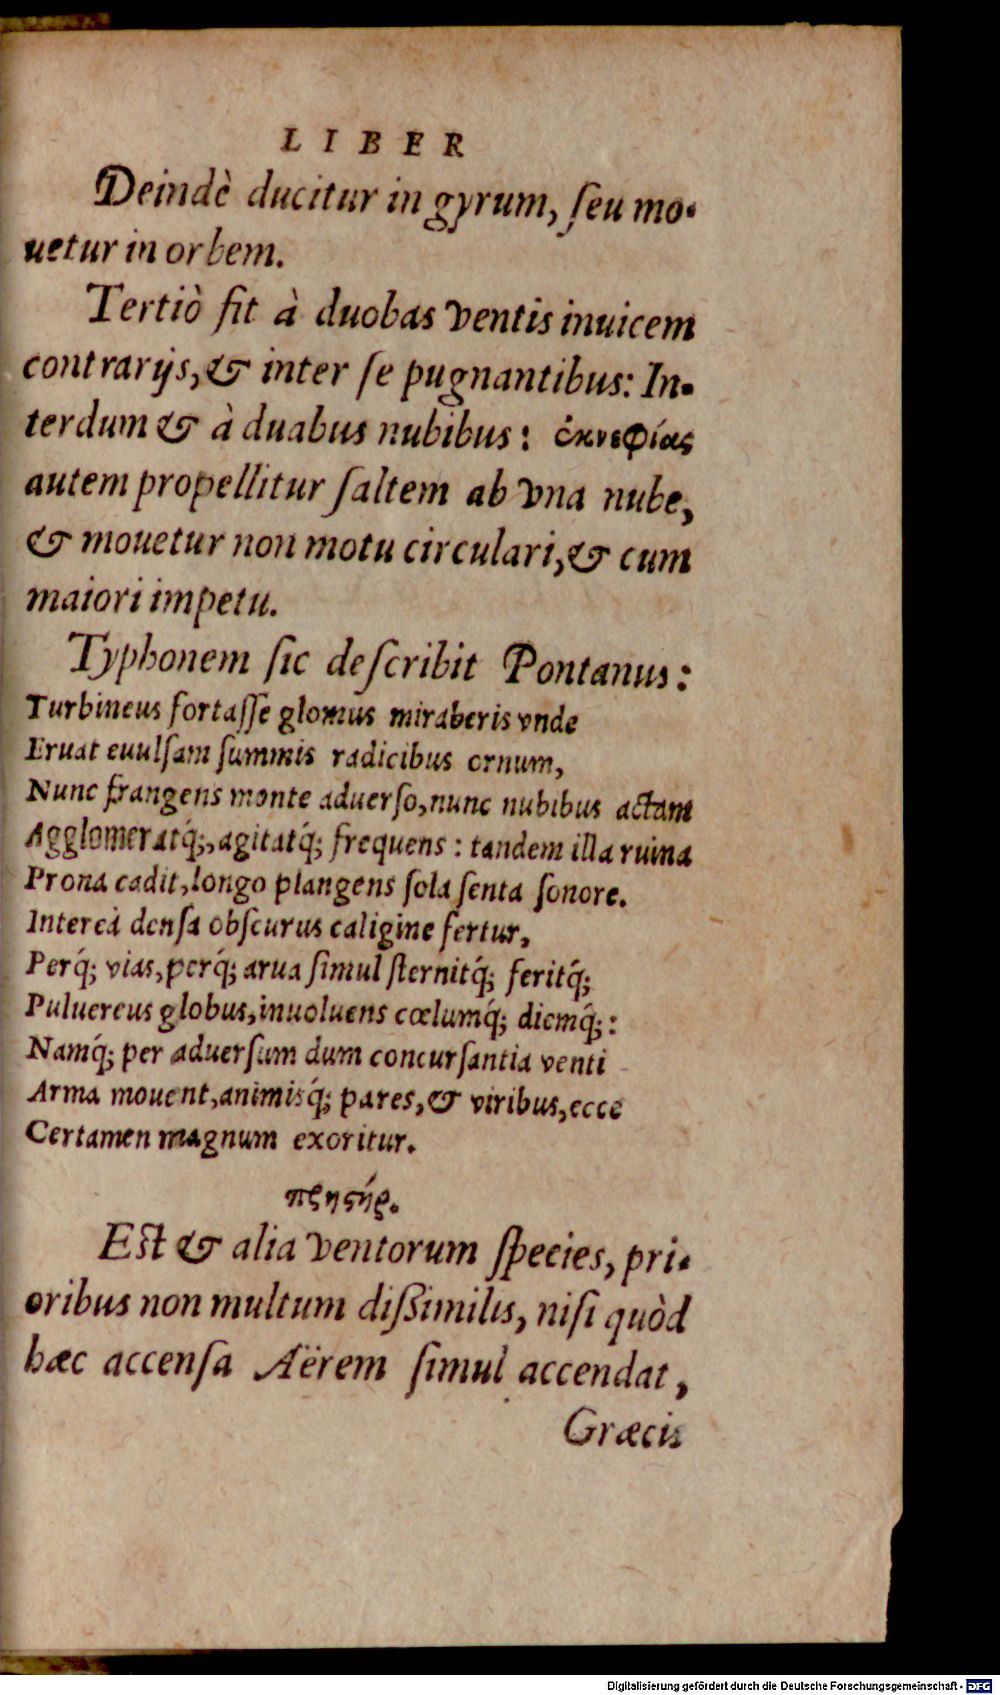 LIBER
Deindè ducitur in gyrum, ſeu mo-
uetur in orbem.
Tertiò fit à duobas ventis inuicem
contrarijs, & inter ſe pugnantibus: In-
terdum & à duabus nubibus: ἐκνεφίας
autem propellitur ſaltem ab vna nube,
& mouetur non motu circulari, & cum
maiori impetu.
Typhonem ſic deſcribit Pontanus:
Turbineus fortaſſe glomus miraberis vnde
Eruat euulſam ſummis radicibus ornum,
Nunc frangens monte aduerſo, nunc nubibus actam
Agglomeratq́;, agitatq́; frequens: tandem illa ruina
Prona cadit, longo plangens ſola ſenta ſonore.
Intereà denſa obſcurus caligine fertur,
Perq́; vias, perq́; arua ſimul ſternitq́; feritq́;
Puluereus globus, inuoluens cœlumq́; diemq́;:
Namq́; per aduerſum dum concurſantia venti
Arma mouent, animisq́; pares, & viribus, ecce
Certamen magnum exoritur.
πρηϛήρ.
Eſt & alia ventorum ſpecies, pri-
oribus non multum diſſimilis, niſi quòd
hæc accenſa Aërem ſimul accendat,
Græcis
Digitalisierung gefördert durch die Deutsche Forschungsgemeinschaft - DFG